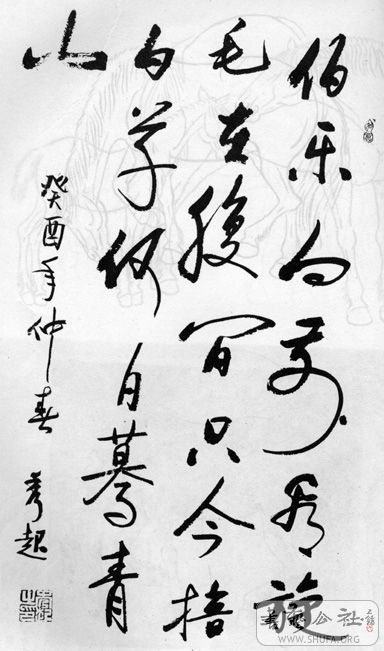 伯乐向前看旋
毛在腹间只今掊
白草何日蓦青
山
癸酉年仲春 秀超
公社
WWW.SHUFA.ORG